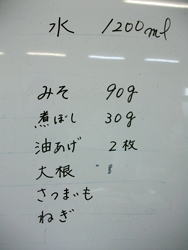 水 1200ml
みそ 90g
煮ぼし 30g
油あげ 2枚
大根
さつまいも
ねぎ